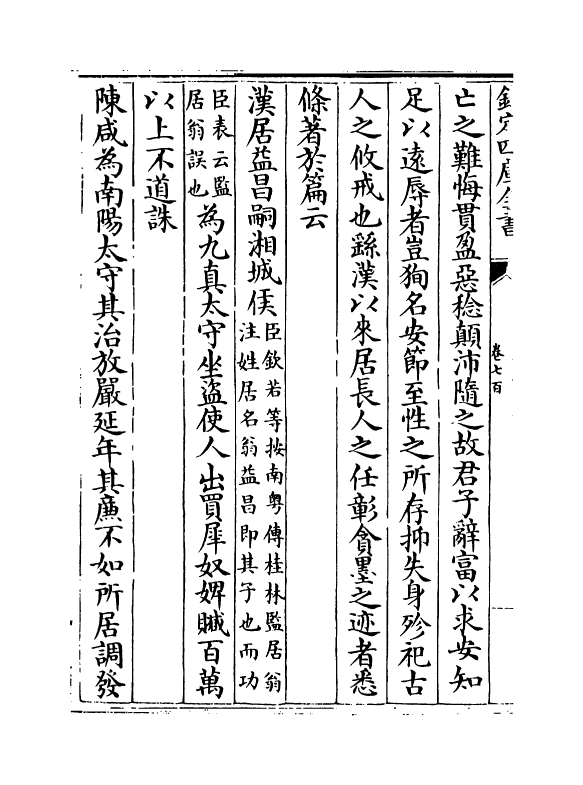 欽定四庫全書
卷七百
亡之難悔貫盈惡稔顛沛隨之故君子辭富以求安知
足以遠辱者豈狥名安節至性之所存抑失身殄祀古
人之攸戒也繇漢以來居長人之任彰貪墨之迹者悉
條著於篇云
漢居益昌嗣湘城侯臣欽若等按南粤傳桂林監居翁
注姓居名翁益昌即其子也而功
臣表云監
居翁誤也為九真太守坐盜使人出買犀奴婢贓百萬
以上不道誅
陳咸為南陽太守其治放嚴延年其廉不如所居調發